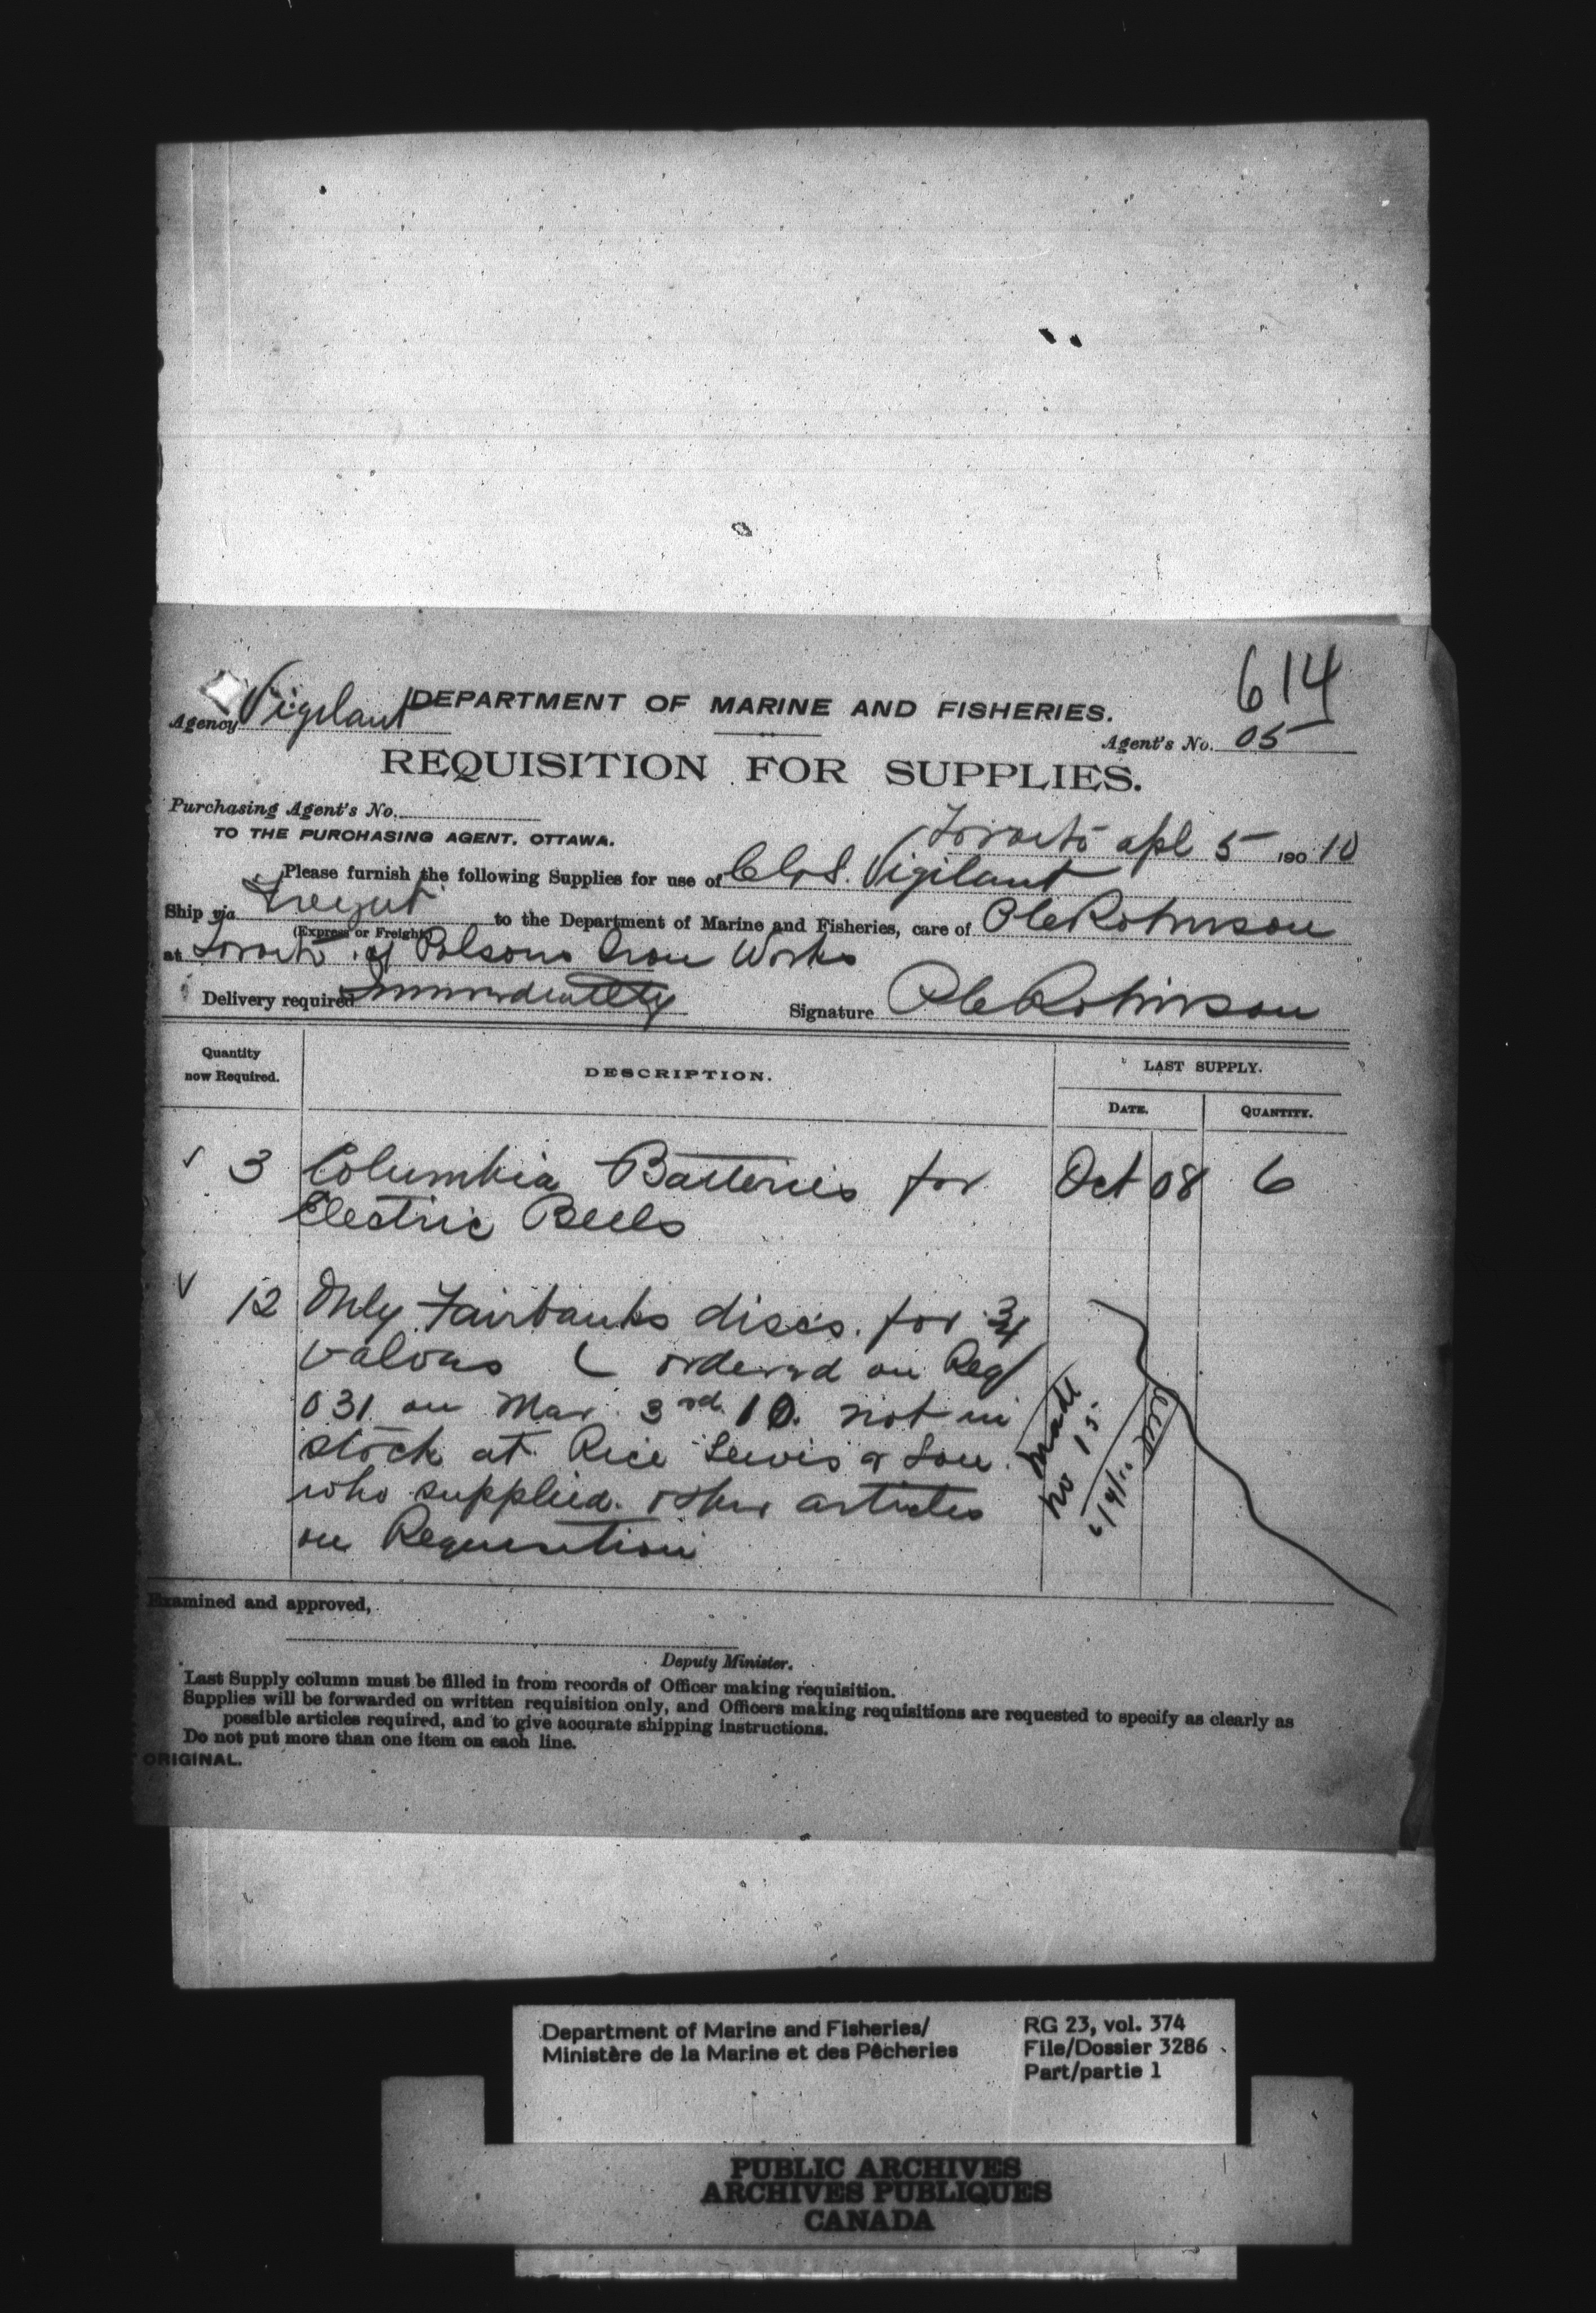 614
DEPARTMENT OF MARINE AND FISHERIES.
Agency Vigilant
Agent's No. 05
REQUISITION FOR SUPPLIES.
Purchasing Agent's No.
TO THE PURCHASING AGENT, OTTAWA.
Toronto Apl 5 190 10
Please furnish the following Supplies for use of C.G.S. Vigilant
Ship via Freight to the Department of Marine and Fisheries, care of Robinson
(Express or Freight)
at Toronto Polsons Iron Works
Delivery required Immediatelty Signature Robinson
Quantity now Required. DESCRIPTION. LAST SUPPLY.
DATE. QUANTITY.
3 Columbia Batteries for Oct 08 6
Electric Bells
12 Only Fairbanks discs. for 3/4
valves ( ordered on Req
031 on Mar. 3rd 10. not in
stock at Rice Lewis & Son
who supplied other articles
on Requisition
Examined and approved,
Deputy Minister.
Last Supply column must be filled in from records of Officer making requisition.
Supplies will be forwarded on written requisition only, and Officers making requisitions are requested to specify as clearly as
possible articles required, and to give accurate shipping instructions.
Do not put more than one item on each line.
ORIGINAL.
Department of Marine and Fisheries/
Ministère de la Marine et des Pêcheries
RG 23, vol. 374
File/Dossier 3286
Part/partie 1
PUBLIC ARCHIVES
ARCHIVES PUBLIQUES
CANADA